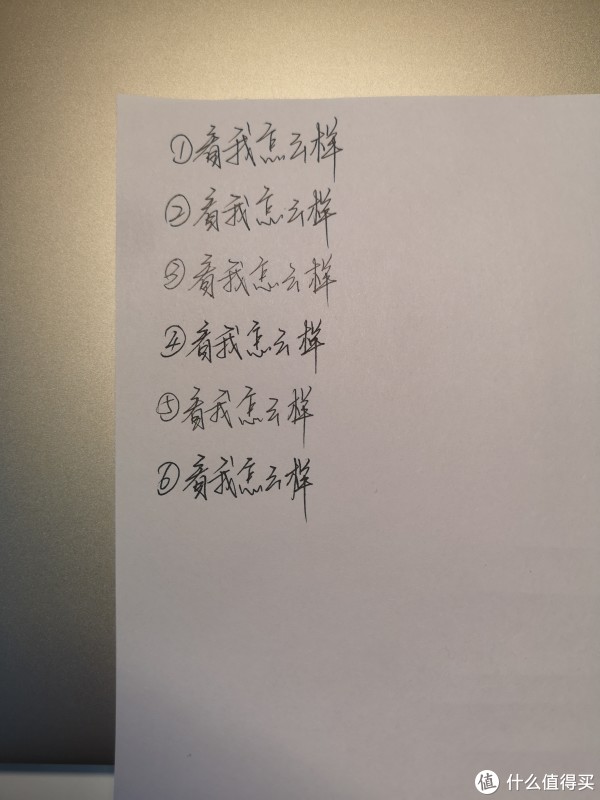 ①看我怎么样
②看我怎么样
③看我怎么样
④看我怎么样
⑤看我怎么样
⑥看我怎么样
值 什么值得买